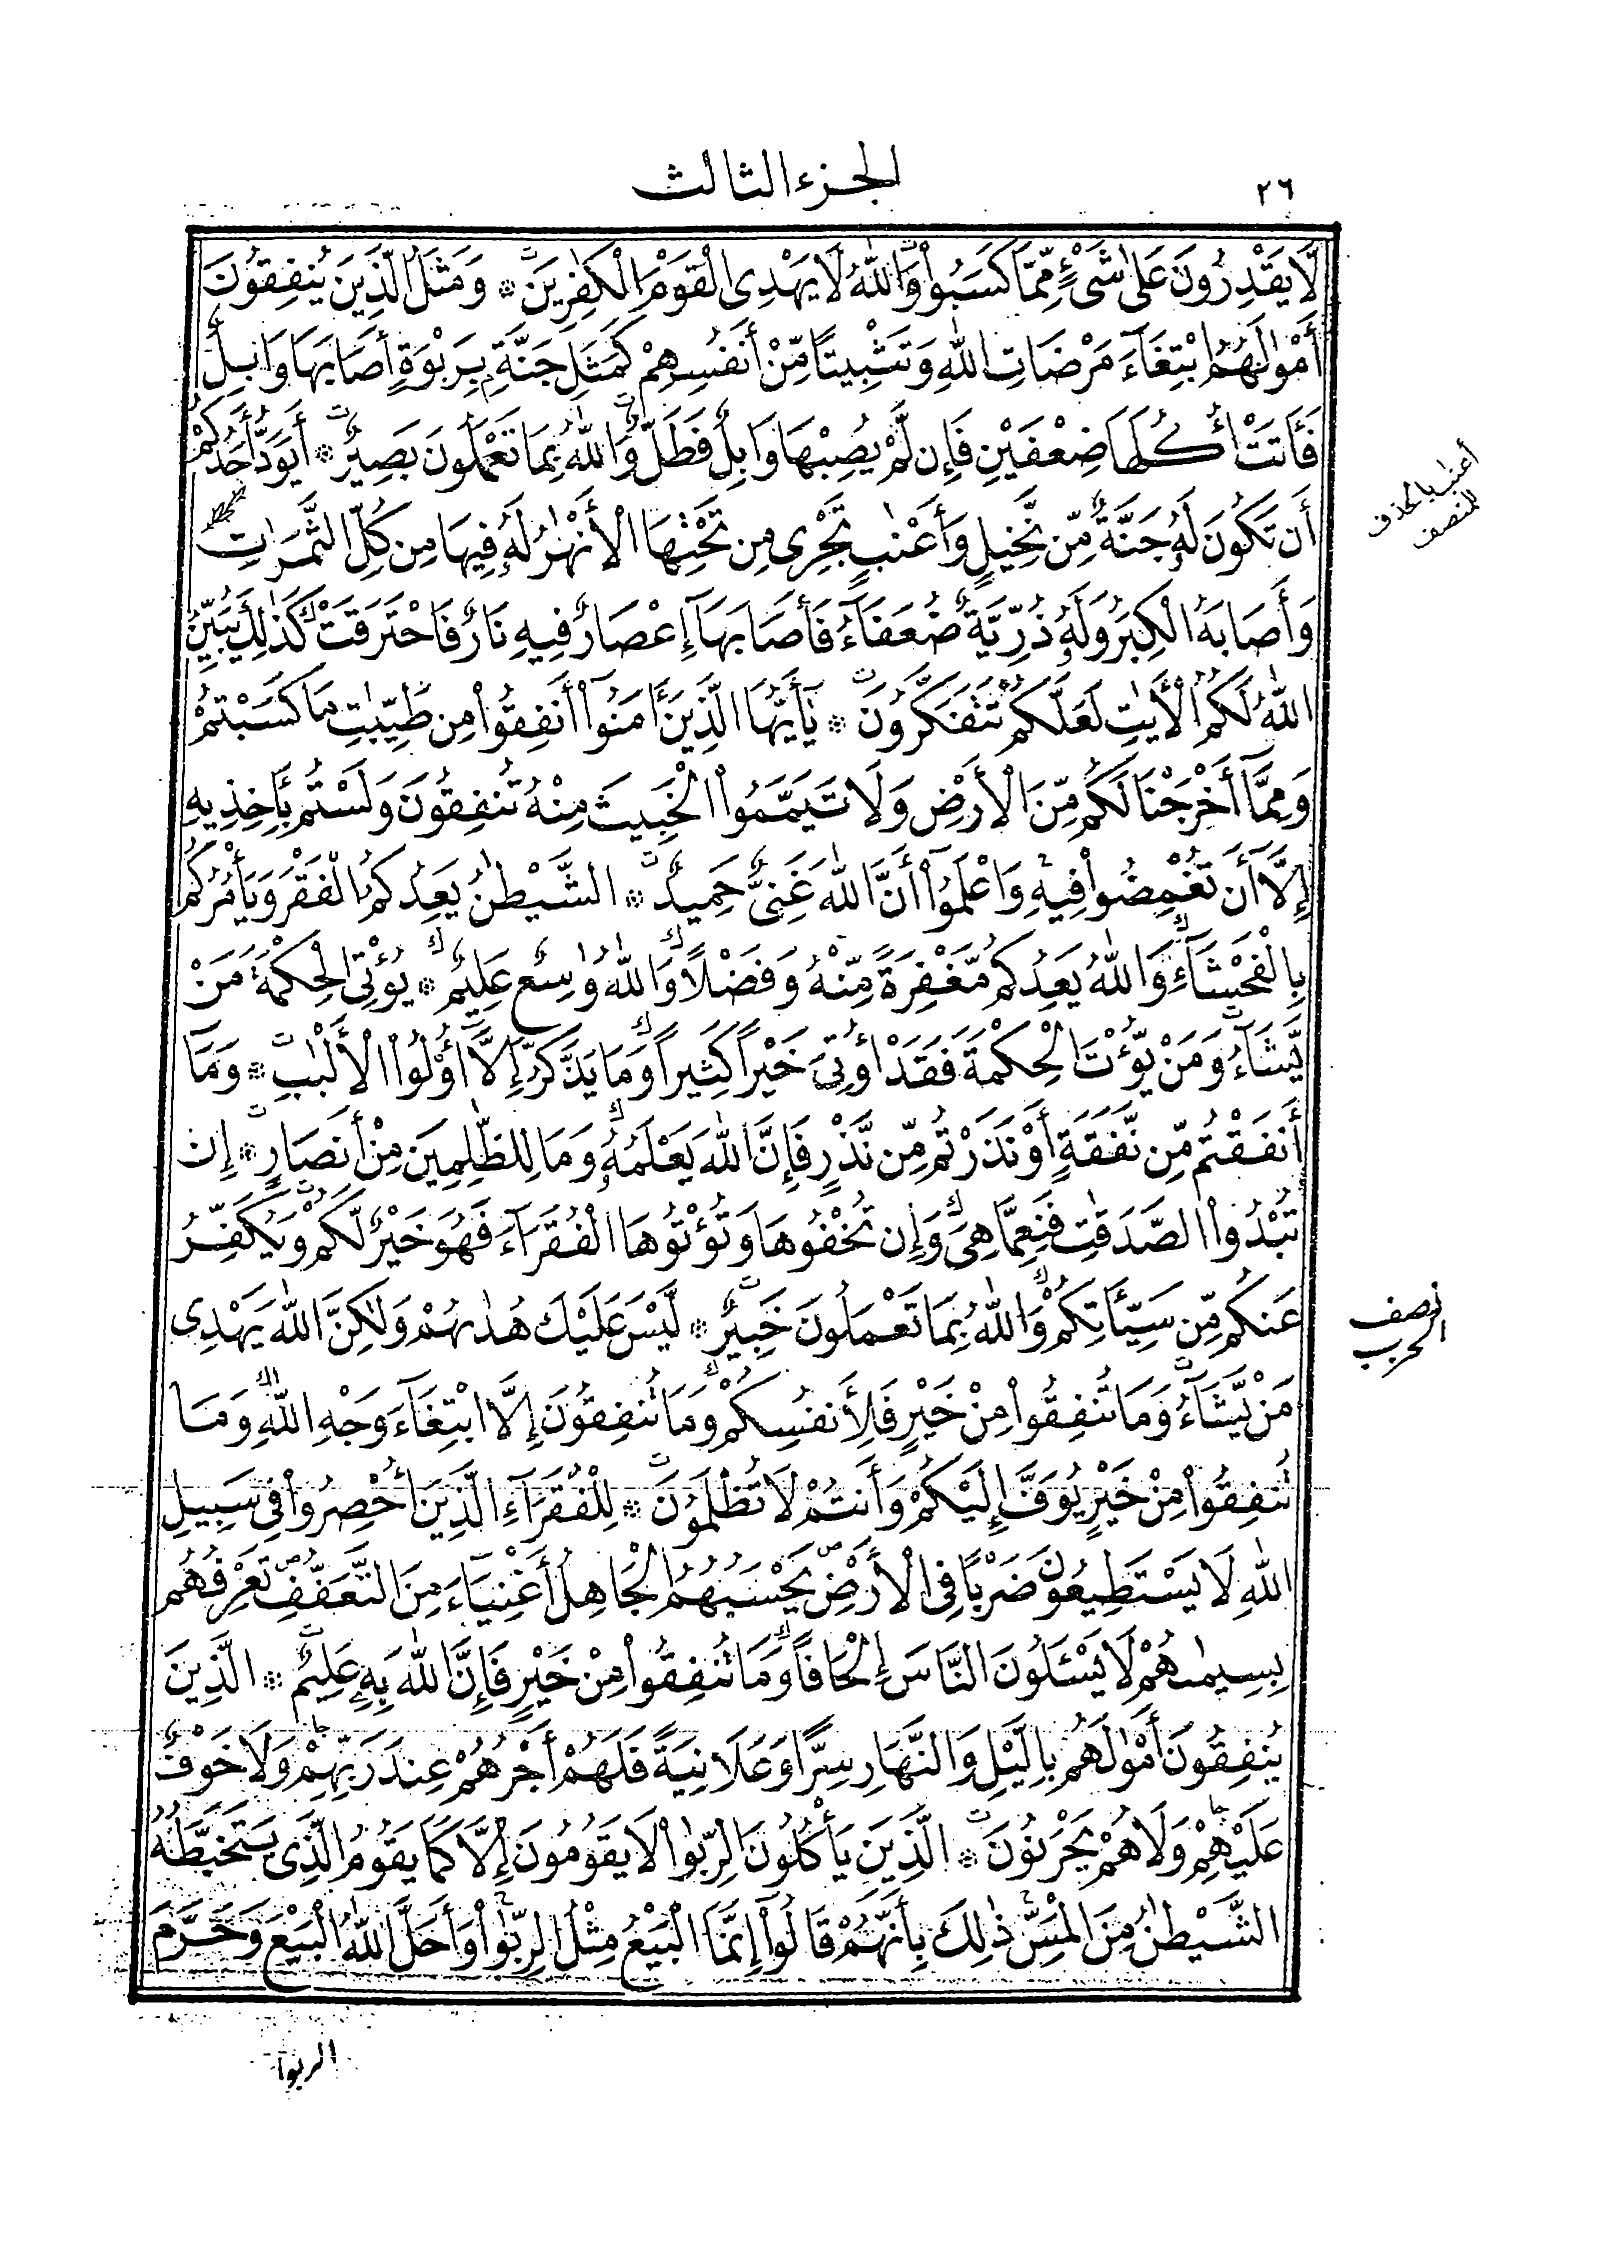 ٢٦
الجزء الثالث
لَّا يَقْدِرُونَ عَلَىٰ شَىْءٍ مِّمَّا كَسَبُوا۟ وَٱللَّهُ لَا يَهْدِى ٱلْقَوْمَ ٱلْكَٰفِرِينَ ۞ وَمَثَلُ ٱلَّذِينَ يُنفِقُونَ
أَمْوَٰلَهُمُ ٱبْتِغَآءَ مَرْضَاتِ ٱللَّهِ وَتَثْبِيتًا مِّنْ أَنفُسِهِمْ كَمَثَلِ جَنَّةٍۭ بِرَبْوَةٍ أَصَابَهَا وَابِلٌ
فَـَٔاتَتْ أُكُلَهَا ضِعْفَيْنِ فَإِن لَّمْ يُصِبْهَا وَابِلٌ فَطَلٌّ وَٱللَّهُ بِمَا تَعْمَلُونَ بَصِيرٌ ۞ أَيَوَدُّ أَحَدُكُمْ
أَن تَكُونَ لَهُۥ جَنَّةٌ مِّن نَّخِيلٍ وَأَعْنَٰبٍ تَجْرِى مِن تَحْتِهَا ٱلْأَنْهَٰرُ لَهُۥ فِيهَا مِن كُلِّ ٱلثَّمَرَٰتِ
أعنب بالحذف
للمنصف
وَأَصَابَهُ ٱلْكِبَرُ وَلَهُۥ ذُرِّيَّةٌ ضُعَفَآءُ فَأَصَابَهَآ إِعْصَارٌ فِيهِ نَارٌ فَٱحْتَرَقَتْ كَذَٰلِكَ يُبَيِّنُ
ٱللَّهُ لَكُمُ ٱلْأَيَٰتِ لَعَلَّكُمْ تَتَفَكَّرُونَ ۞ يَٰٓأَيُّهَا ٱلَّذِينَ ءَامَنُوٓا۟ أَنفِقُوا۟ مِن طَيِّبَٰتِ مَا كَسَبْتُمْ
وَمِمَّآ أَخْرَجْنَا لَكُم مِّنَ ٱلْأَرْضِ وَلَا تَيَمَّمُوا۟ ٱلْخَبِيثَ مِنْهُ تُنفِقُونَ وَلَسْتُم بِـَٔاخِذِيهِ
إِلَّآ أَن تُغْمِضُوا۟ فِيهِ وَٱعْلَمُوٓا۟ أَنَّ ٱللَّهَ غَنِىٌّ حَمِيدٌ ۞ ٱلشَّيْطَٰنُ يَعِدُكُمُ ٱلْفَقْرَ وَيَأْمُرُكُم
بِٱلْفَحْشَآءِ وَٱللَّهُ يَعِدُكُم مَّغْفِرَةً مِّنْهُ وَفَضْلًا وَٱللَّهُ وَٰسِعٌ عَلِيمٌ ۞ يُؤْتِى ٱلْحِكْمَةَ مَنْ
يَّشَآءُ وَمَنْ يُّؤْتَ ٱلْحِكْمَةَ فَقَدْ أُوتِىَ خَيْرًا كَثِيرًا وَمَا يَذَّكَّرُ إِلَّآ أُو۟لُوا۟ ٱلْأَلْبَٰبِ ۞ وَمَآ
أَنفَقْتُم مِّن نَّفَقَةٍ أَوْ نَذَرْتُم مِّن نَّذْرٍ فَإِنَّ ٱللَّهَ يَعْلَمُهُۥ وَمَا لِلظَّٰلِمِينَ مِنْ أَنصَارٍ ۞ إِن
تُبْدُوا۟ ٱلصَّدَقَٰتِ فَنِعِمَّا هِىَ وَإِن تُخْفُوهَا وَتُؤْتُوهَا ٱلْفُقَرَآءَ فَهُوَ خَيْرٌ لَّكُمْ وَيُكَفِّرُ
عَنكُم مِّن سَيِّـَٔاتِكُمْ وَٱللَّهُ بِمَا تَعْمَلُونَ خَبِيرٌ ۞ لَّيْسَ عَلَيْكَ هُدَىٰهُمْ وَلَٰكِنَّ ٱللَّهَ يَهْدِى
نصف
الحزب
مَنْ يَّشَآءُ وَمَا تُنفِقُوا۟ مِنْ خَيْرٍ فَلِأَنفُسِكُمْ وَمَا تُنفِقُونَ إِلَّا ٱبْتِغَآءَ وَجْهِ ٱللَّهِ وَمَا
تُنفِقُوا۟ مِنْ خَيْرٍ يُوَفَّ إِلَيْكُمْ وَأَنتُمْ لَا تُظْلَمُونَ ۞ لِلْفُقَرَآءِ ٱلَّذِينَ أُحْصِرُوا۟ فِى سَبِيلِ
ٱللَّهِ لَا يَسْتَطِيعُونَ ضَرْبًا فِى ٱلْأَرْضِ يَحْسَبُهُمُ ٱلْجَاهِلُ أَغْنِيَآءَ مِنَ ٱلتَّعَفُّفِ تَعْرِفُهُم
بِسِيمَٰهُمْ لَا يَسْـَٔلُونَ ٱلنَّاسَ إِلْحَافًا وَمَا تُنفِقُوا۟ مِنْ خَيْرٍ فَإِنَّ ٱللَّهَ بِهِۦ عَلِيمٌ ۞ ٱلَّذِينَ
يُنفِقُونَ أَمْوَٰلَهُم بِٱلَّيْلِ وَٱلنَّهَارِ سِرًّا وَعَلَانِيَةً فَلَهُمْ أَجْرُهُمْ عِندَ رَبِّهِمْ وَلَا خَوْفٌ
عَلَيْهِمْ وَلَا هُمْ يَحْزَنُونَ ۞ ٱلَّذِينَ يَأْكُلُونَ ٱلرِّبَوٰا۟ لَا يَقُومُونَ إِلَّا كَمَا يَقُومُ ٱلَّذِى يَتَخَبَّطُهُ
ٱلشَّيْطَٰنُ مِنَ ٱلْمَسِّ ذَٰلِكَ بِأَنَّهُمْ قَالُوٓا۟ إِنَّمَا ٱلْبَيْعُ مِثْلُ ٱلرِّبَوٰا۟ وَأَحَلَّ ٱللَّهُ ٱلْبَيْعَ وَحَرَّمَ
الربوا